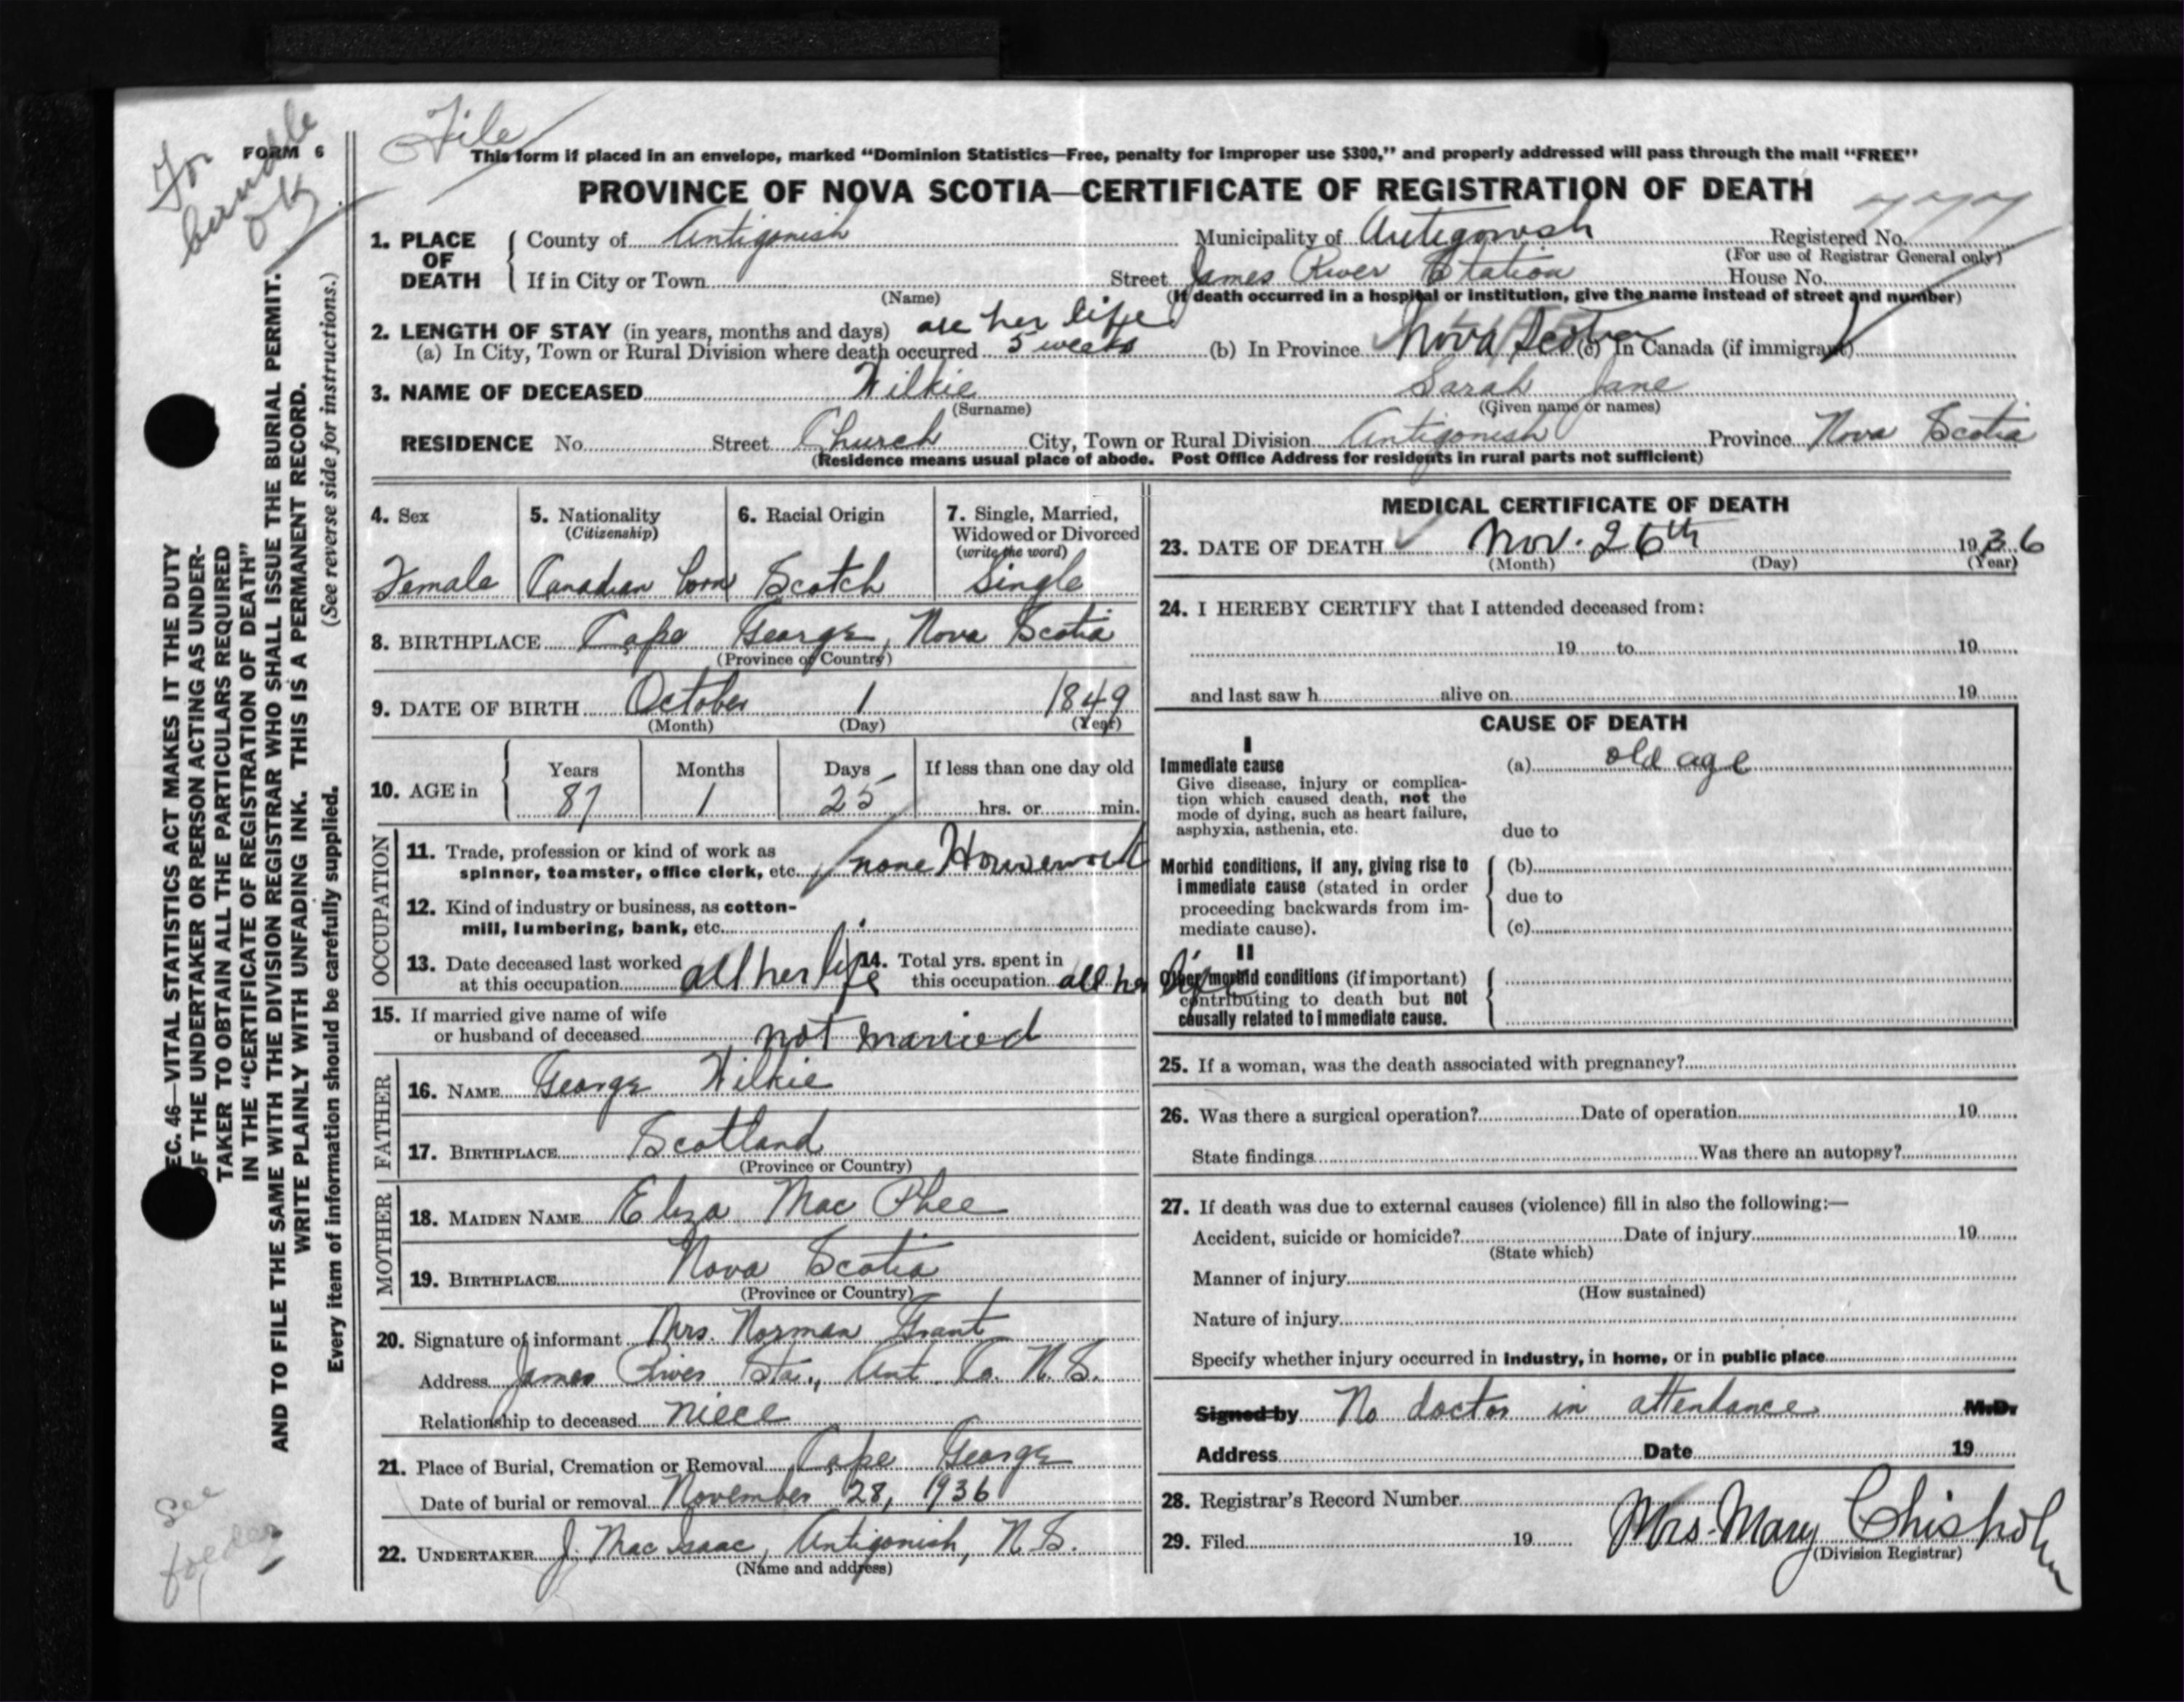 For bundle OK
File
FORM 6
This form if placed in an envelope, marked “Dominion Statistics—Free, penalty for improper use $300,” and properly addressed will pass through the mail “FREE”
PROVINCE OF NOVA SCOTIA—CERTIFICATE OF REGISTRATION OF DEATH
777
1. PLACE OF DEATH County of Antigonish Municipality of Antigonish Registered No.
(For use of Registrar General only)
If in City or Town Street James River Station House No.
(Name) (If death occurred in a hospital or institution, give the name instead of street and number)
2. LENGTH OF STAY (in years, months and days) all her life
(a) In City, Town or Rural Division where death occurred 5 weeks (b) In Province Nova Scotia (c) In Canada (if immigrant)
3. NAME OF DECEASED Wilkie Sarah Jane
(Surname) (Given name or names)
RESIDENCE No. Street Church City, Town or Rural Division Antigonish Province Nova Scotia
(Residence means usual place of abode. Post Office Address for residents in rural parts not sufficient)
4. Sex 5. Nationality 6. Racial Origin 7. Single, Married,
(Citizenship) Widowed or Divorced
(write the word)
Female Canadian born Scotch Single
8. BIRTHPLACE Cape George, Nova Scotia
(Province or Country)
9. DATE OF BIRTH October 1 1849
(Month) (Day) (Year)
10. AGE in Years Months Days If less than one day old
87 1 25 hrs. or min.
OCCUPATION
11. Trade, profession or kind of work as
spinner, teamster, office clerk, etc. none Housework
12. Kind of industry or business, as cotton-
mill, lumbering, bank, etc.
13. Date deceased last worked
at this occupation all her life
14. Total yrs. spent in
this occupation all her life
15. If married give name of wife
or husband of deceased not married
FATHER
16. NAME George Wilkie
17. BIRTHPLACE Scotland
(Province or Country)
MOTHER
18. MAIDEN NAME Eliza Mac Phee
19. BIRTHPLACE Nova Scotia
(Province or Country)
20. Signature of informant Mrs. Norman Grant
Address James River Sta., Ant. Co. N.S.
Relationship to deceased niece
21. Place of Burial, Cremation or Removal Cape George
Date of burial or removal November 28, 1936
22. UNDERTAKER J. Mac Isaac, Antigonish, N.S.
(Name and address)
MEDICAL CERTIFICATE OF DEATH
23. DATE OF DEATH Nov. 26th 1936
(Month) (Day) (Year)
24. I HEREBY CERTIFY that I attended deceased from:
19 to 19
and last saw h alive on 19
CAUSE OF DEATH
I
Immediate cause (a) old age
Give disease, injury or complica-
tion which caused death, not the
mode of dying, such as heart failure,
asphyxia, asthenia, etc. due to
Morbid conditions, if any, giving rise to (b)
immediate cause (stated in order
proceeding backwards from im- due to
mediate cause). (c)
II
Other morbid conditions (if important)
contributing to death but not
causally related to immediate cause.
25. If a woman, was the death associated with pregnancy?
26. Was there a surgical operation? Date of operation 19
State findings Was there an autopsy?
27. If death was due to external causes (violence) fill in also the following:—
Accident, suicide or homicide? Date of injury 19
(State which)
Manner of injury
(How sustained)
Nature of injury
Specify whether injury occurred in industry, in home, or in public place
Signed by No doctor in attendance M.D.
Address Date 19
28. Registrar's Record Number
29. Filed 19 Mrs. Mary Chisholm
(Division Registrar)
EC. 46—VITAL STATISTICS ACT MAKES IT THE DUTY
OF THE UNDERTAKER OR PERSON ACTING AS UNDER-
TAKER TO OBTAIN ALL THE PARTICULARS REQUIRED
IN THE “CERTIFICATE OF REGISTRATION OF DEATH”
AND TO FILE THE SAME WITH THE DIVISION REGISTRAR WHO SHALL ISSUE THE BURIAL PERMIT.
WRITE PLAINLY WITH UNFADING INK. THIS IS A PERMANENT RECORD.
Every item of information should be carefully supplied. (See reverse side for instructions.)
See